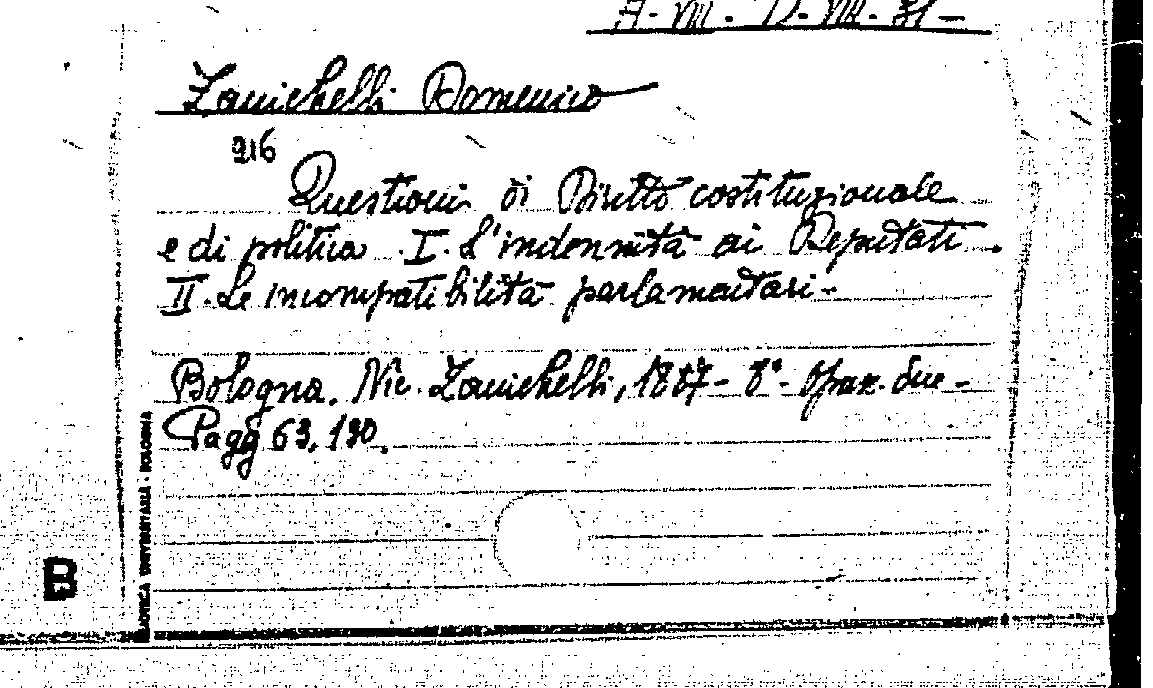 Zanichelli Domenico
916
Questioni di Diritto costituzionale
e di politica. I. L'indennità ai Deputati.
II. Le incompatibilità parlamentari-
Bologna. Nic. Zanichelli, 1887- 8°- Opusc. due-
Pagg 63. 130.
BIBLIOTECA UNIVERSITARIA - BOLOGNA
B